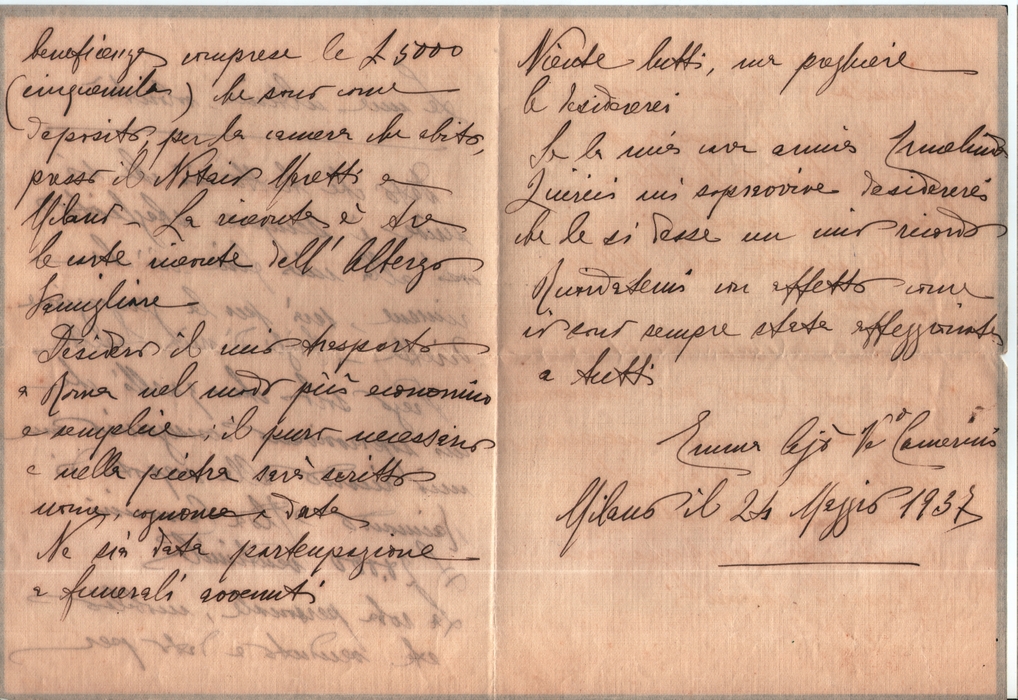 beneficenza comprese le £ 5000
(cinquemila) che sono come
deposito, per la camera che abito,
presso il Notaio Moretti a
Milano – La ricevuta è tra
le carte ricevute dell'Albergo
Famigliare
Desidero il mio trasporto
a Roma nel modo più economico
e semplice; il puro necessario
e nella pietra sarà scritto
nome, cognome e data
Ne sia data partecipazione
a funerali avvenuti
Niente lutti, ma preghiere
le desidererei
Se la mia cara amica Ermelinda
mi sopravvive desidererei
che le si desse un mio ricordo
Ricordatemi con affetto come
io sono sempre stata affezionata
a tutti
Emma Ajò Va Camerini
Milano il 24 Maggio 1937